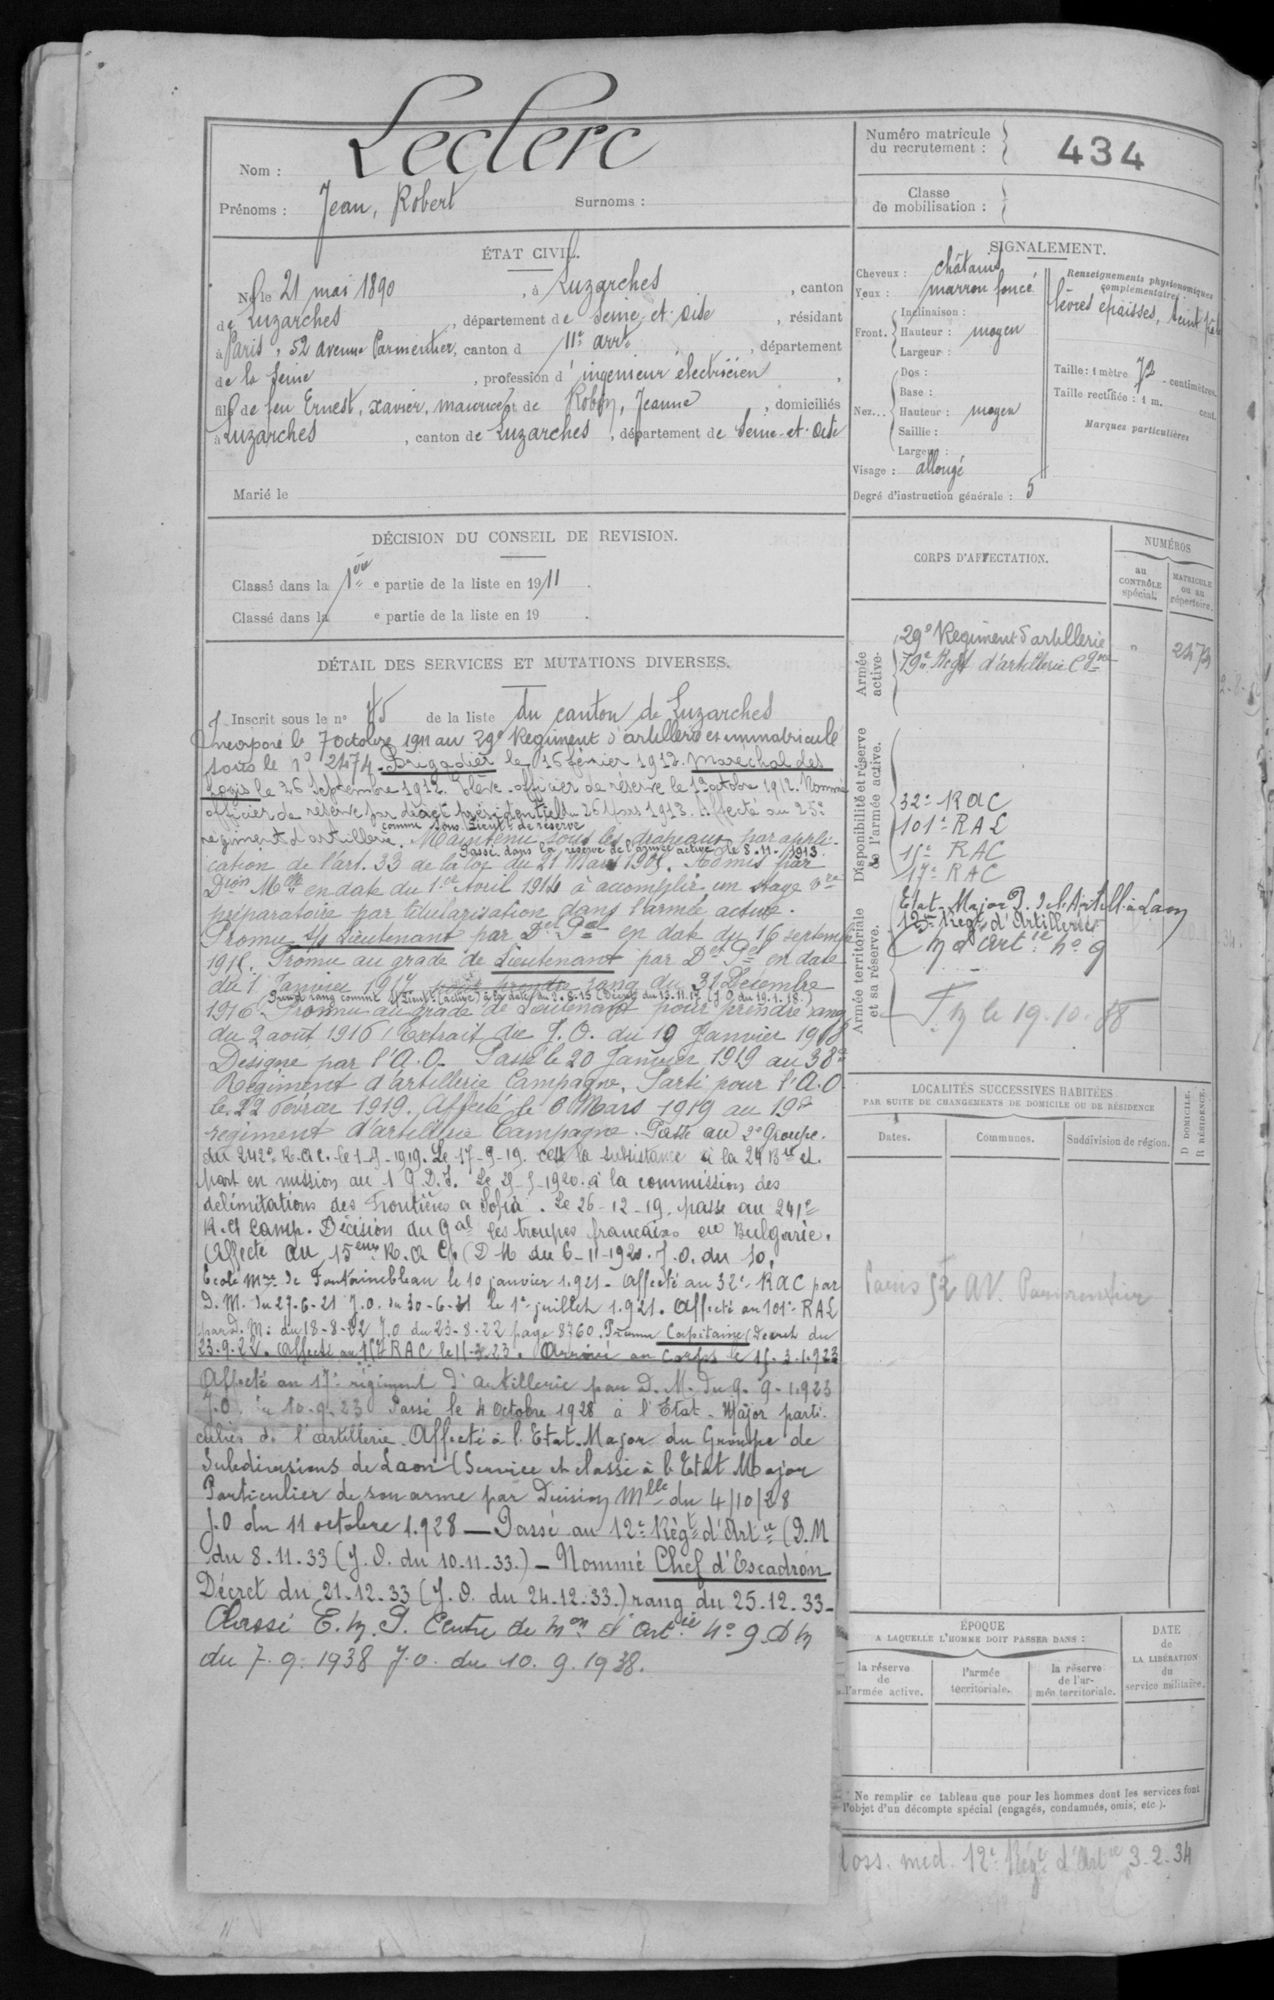 Nom : Leclerc
Prénoms : Jean, Robert Surnoms :
Numéro matricule du recrutement : 434
Classe de mobilisation :
ÉTAT CIVIL.
Né le 21 mai 1890, à Luzarches, canton
de Luzarches, département de Seine-et-Oise, résidant
à Paris, 52 avenue Parmentier, canton d 11e arrt, département
de la Seine, profession d'ingénieur électricien,
fils de feu Ernest, Xavier, Maurice et de Robin, Jeanne, domiciliés
à Luzarches, canton de Luzarches, département de Seine-et-Oise
Marié le
SIGNALEMENT.
Cheveux : châtains
Yeux : marron foncé
Front. Inclinaison :
Hauteur : moyen
Largeur :
Nez... Dos :
Base :
Hauteur : moyen
Saillie :
Largeur :
Visage : allongé
Degré d'instruction générale : 5
Renseignements physionomiques complémentaires :
lèvres épaisses, teint
Taille : 1 mètre 72 centimètres.
Taille rectifiée : 1 m. cent.
Marques particulières
DÉCISION DU CONSEIL DE REVISION.
Classé dans la 1ère e partie de la liste en 1911.
Classé dans la e partie de la liste en 19 .
DÉTAIL DES SERVICES ET MUTATIONS DIVERSES.
Inscrit sous le n° 45 de la liste du canton de Luzarches
Incorporé le 7 octobre 1911 au 29e Régiment d'artillerie et immatriculé
sous le n° 2474. Brigadier le 16 février 1912. Maréchal des
logis le 26 septembre 1912. Elève-officier de réserve le 13 octobre 1912. Nommé
officier de réserve par décret présidentiel du 26 Mars 1913. Affecté au 25e
régiment d'artillerie comme Sous-Lieut. de réserve. Maintenu sous les drapeaux par appli-
cation de l'art. 33 de la loi du 21 Mars 1905. Passé dans la réserve de l'armée active le 8-11-1913. Admis par
Dion Mlle en date du 1er Avril 1914 à accomplir un stage
préparatoire par titularisation dans l'armée active.
Promu S/s Lieutenant par Det Pel en date du 16 septembre
1915. Promu au grade de Lieutenant par Det Pel en date
du 1 Janvier 1917 pour prendre rang du 31 Décembre
1916. Prend rang comme S/Lieut. (active) à la date du 2-8-15 (Décret du 13.11.17 (J.O du 19.1.18.)
Promu au grade de Lieutenant pour prendre rang
du 2 août 1916 (Extrait du J.O. du 19 Janvier 1918
Désigné par l'A.O. Passé le 20 Janvier 1919 au 38e
Régiment d'artillerie Campagne. Parti pour l'A.O.
le 22 Février 1919. Affecté le 6 Mars 1919 au 19e
régiment d'artillerie Campagne. Passé au 2e Groupe.
du 242e R.A.C. le 1-9-1919. Le 17-9-19. la subsistance à la 24 Bie et
part en mission au 1 G.D.I. à la commission des
délimitations des Frontières à Sofia. Le 26-12-19, passe au 241e
R.A camp. Décision du Gal les troupes françaises en Bulgarie.
Affecté au 15eme R.A.C. (D M du 6-11-1920. J.O. du 10.
Ecole Mre de Fontainebleau le 10 janvier 1.921 - Affecté au 32e RAC par
D.M. du 27-6-21 J.O. du 30-6-21 le 1er juillet 1.921. Affecté au 101e RAL
par D.M. du 18-8-22 J.O du 23-8-22 page 8760. Promu Capitaine (Decret du
23.9.22. Affecté au 15e RAC. Arrivé au corps le 15.3.1.923
Affecté au 17e régiment d'artillerie par D.M. du 9-9-1.923
J.O. du 10-9-23 Passé le 4 Octobre 1928 à l'Etat-Major parti-
culier de l'artillerie. Affecté à l'Etat-Major du Groupe de
Subdivisions de Laon (Service et classé à l'Etat Major
Particulier de son arme par Décision Mlle du 4/10/28
J.O du 11 octobre 1.928 - Passé au 12e Régt d'Artie (D.M
du 8-11-33 (J.O. du 10-11-33.) - Nommé Chef d'Escadron
Décret du 21-12-33 (J.O. du 24-12-33.) rang du 25-12-33-
Classé E.M.P. Centre de Mon d'Artie N° 9. D M
du 7.9.1938 J.O. du 10.9.1938.
CORPS D'AFFECTATION.
NUMÉROS
au CONTRÔLE spécial.
MATRICULE ou au répertoire.
Armée active.
29e Régiment d'artillerie " 2474
79e Régt d'artillerie Cgne
Disponibilité et réserve de l'armée active.
32e RAC
101e RAL
15e RAC
17e RAC
Armée territoriale et sa réserve.
Etat-Major P. de l'Artill. à Laon
12e Régt d'Artillerie
C M d'Artie n° 9
LOCALITÉS SUCCESSIVES HABITÉES
PAR SUITE DE CHANGEMENTS DE DOMICILE OU DE RÉSIDENCE
Dates. Communes. Subdivision de région. D DOMICILE. R RÉSIDENCE.
Paris 52 AV. Parmentier
ÉPOQUE
A LAQUELLE L'HOMME DOIT PASSER DANS :
la réserve de l'armée active.
l'armée territoriale.
la réserve de l'armée territoriale.
DATE de LA LIBÉRATION du service militaire.
Ne remplir ce tableau que pour les hommes dont les services font
l'objet d'un décompte spécial (engagés, condamnés, omis, etc.).
med. 12e Régt d'Artie 3-2-34